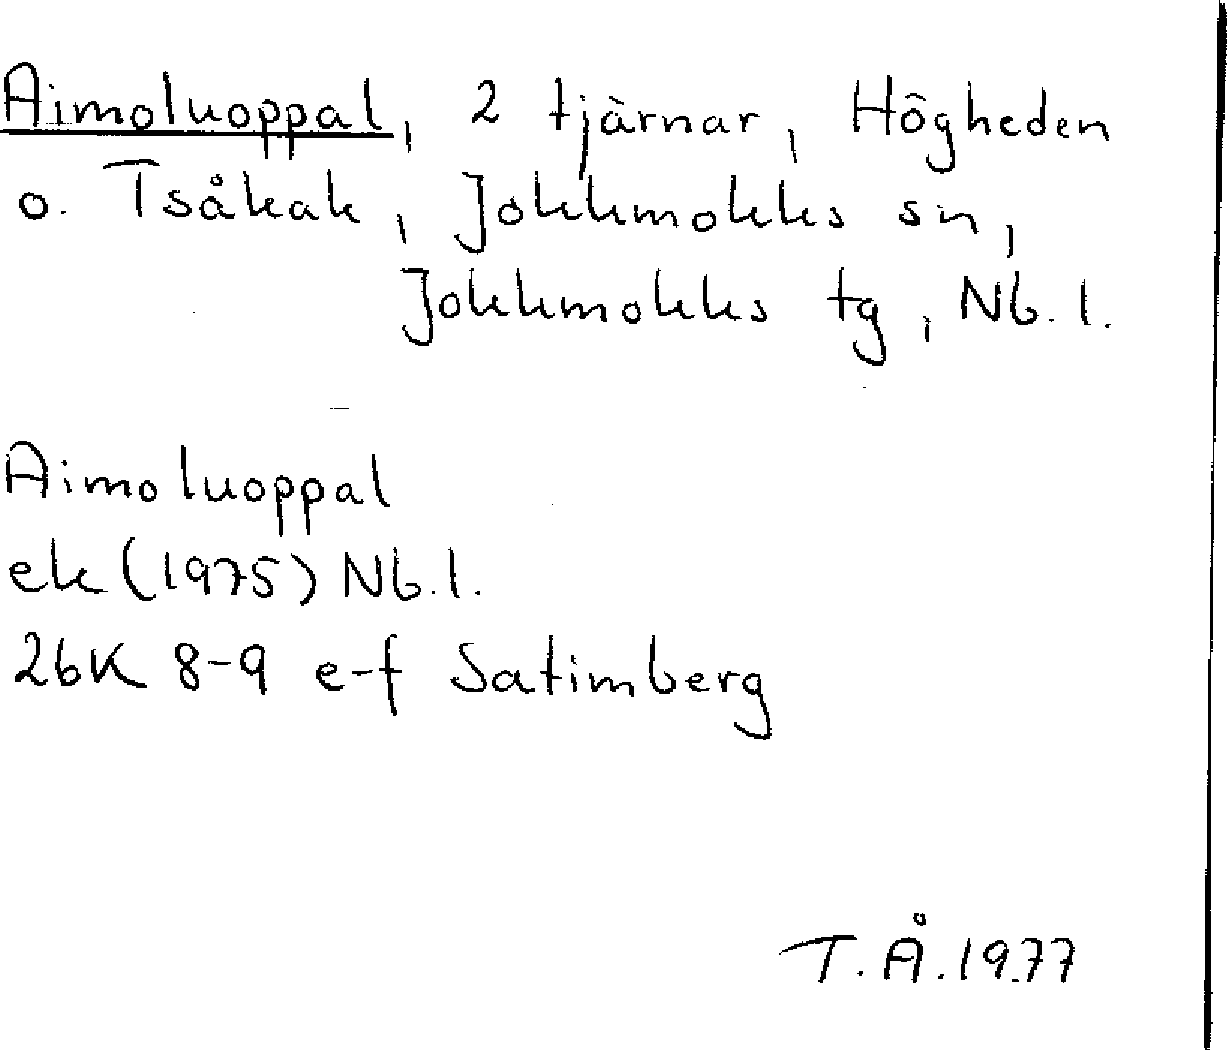 Aimoluoppal, 2 tjärnar, Högheden
o. Tsåkak, Jokkmokks sn,
Jokkmokks tg, Nb. l.
Aimoluoppal
ek (1975) Nb. l.
26K 8-9 e-f Satimberg
T. Å. 1977